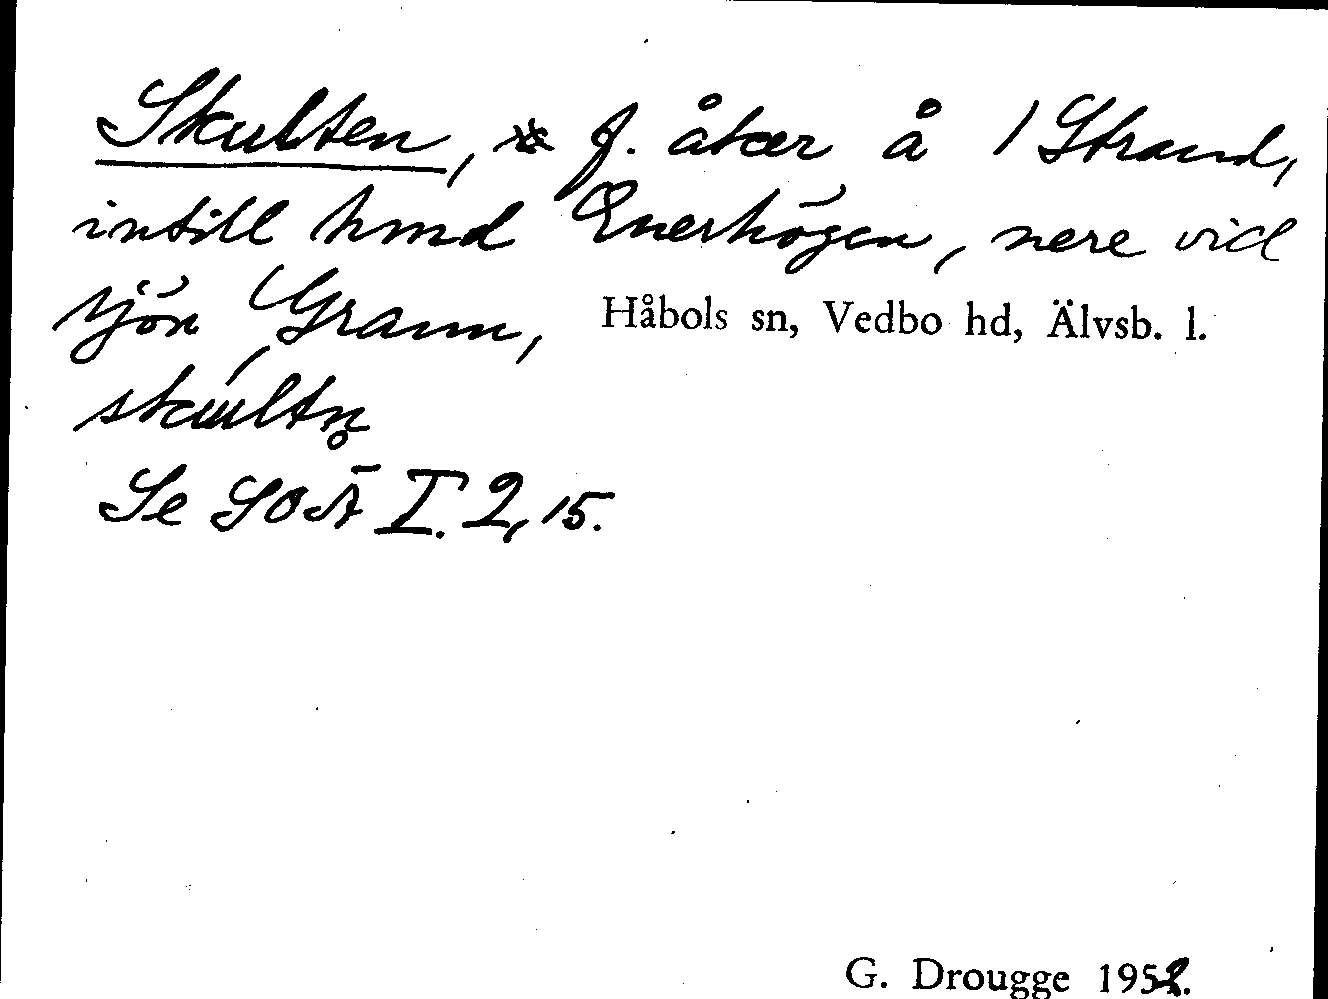 Skulten, f. åker å 1 Strand,
intill hmd Enerhögen, nere vid
sjön Grann, Håbols sn, Vedbo hd, Älvsb. l.
skultn̥
Se SOÄ I. 2, 15.
G. Drougge 1952.